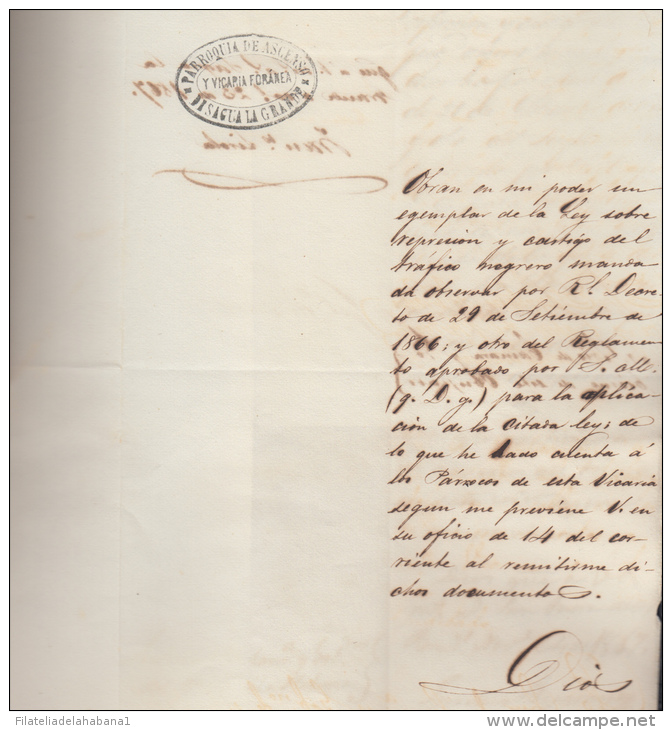 PARROQUIA DE ASCENSO
Y VICARIA FORÁNEA
DE SAGUA LA GRANDE
Obran en mi poder un
egemplar de la Ley sobre
represion y castigo del
tráfico negrero manda
da observar por Rl. Decre
to de 29 de Setiembre de
1866; y otro del Reglamen
to aprobado por S. M.
(q. D. g.) para la aplica
cion de la citada ley; de
lo que he dado cuenta á
los Párrocos de esta Vicaria
segun me previene V. en
su oficio de 14 del cor-
riente al remitirme di-
chos documentos.
Dios
Filateliadelahabana1
delcampe.net